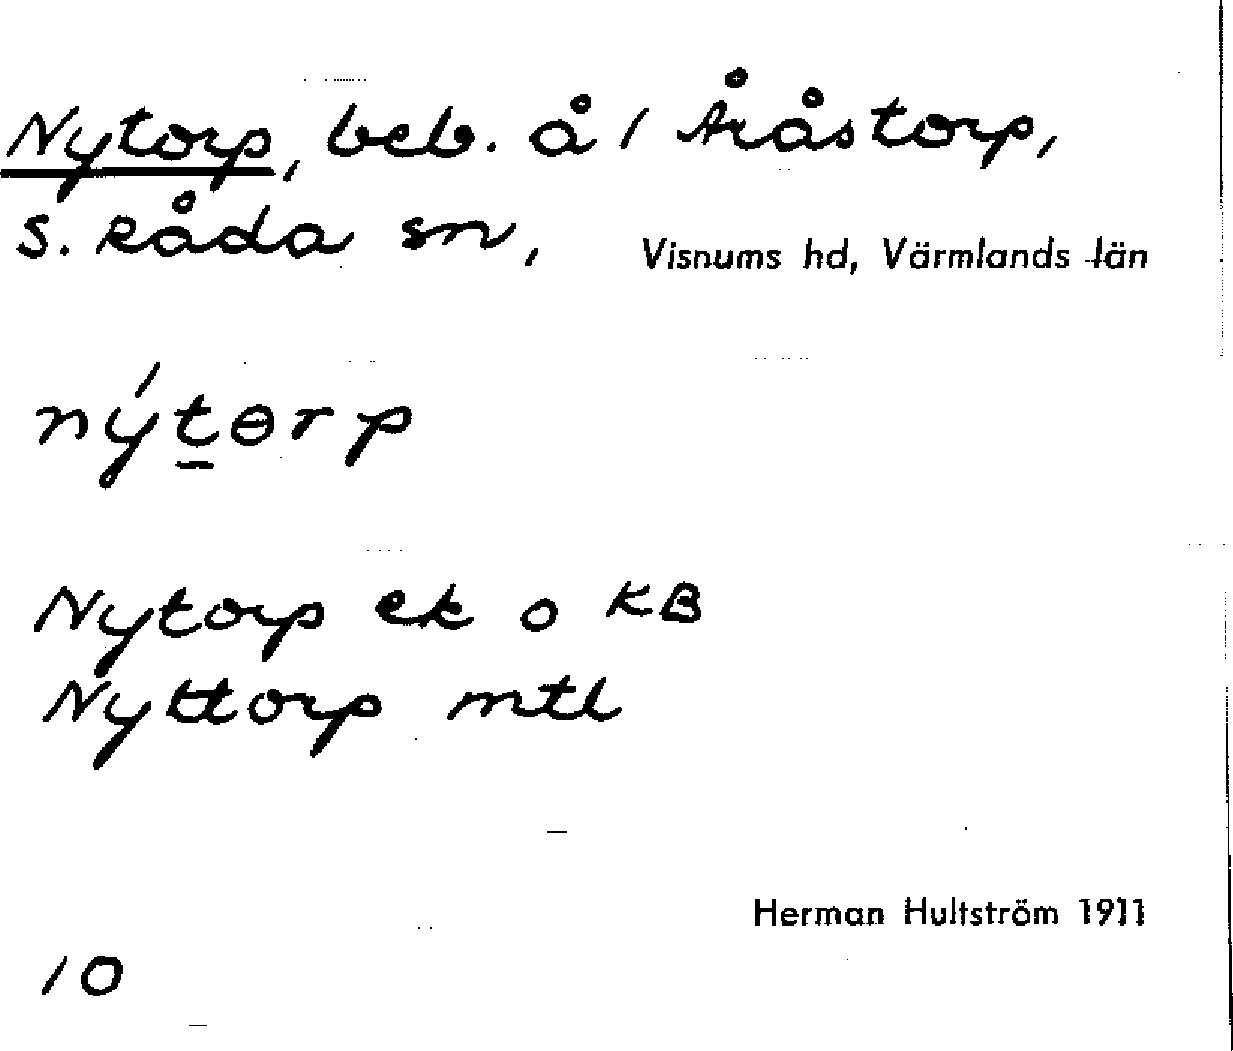 Nytorp, beb. å / Åråstorp,
S. Råda sn, Visnums hd, Värmlands län
nýt̲ɵrp
Nytorp ek o KB
Nyttorp mtl
Herman Hultström 1911
10